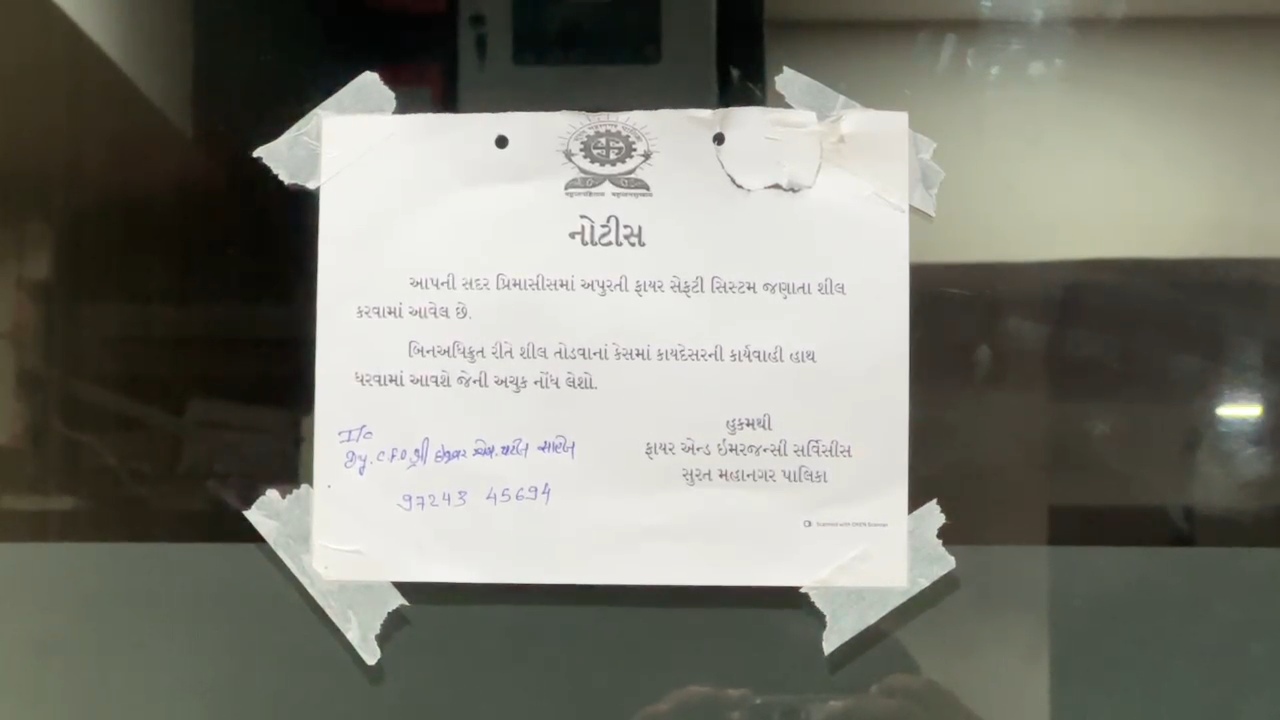 નોટીસ
આપની સદર પ્રિમાસીસમાં અપુરતી ફાયર સેફટી સિસ્ટમ જણાતા શીલ
કરવામાં આવેલ છે.
બિનઅધિકૃત રીતે શીલ તોડવાનાં કેસમાં કાયદેસરની કાર્યવાહી હાથ
ધરવામાં આવશે જેની અચુક નોંધ લેશો.
હુકમથી
ફાયર એન્ડ ઇમરજન્સી સર્વિસીસ
સુરત મહાનગર પાલિકા
I/o
Dy. C.F.O શ્રી ઇશ્વર પટેલ સાહેબ
97243 45694
Scanned with OKEN Scanner